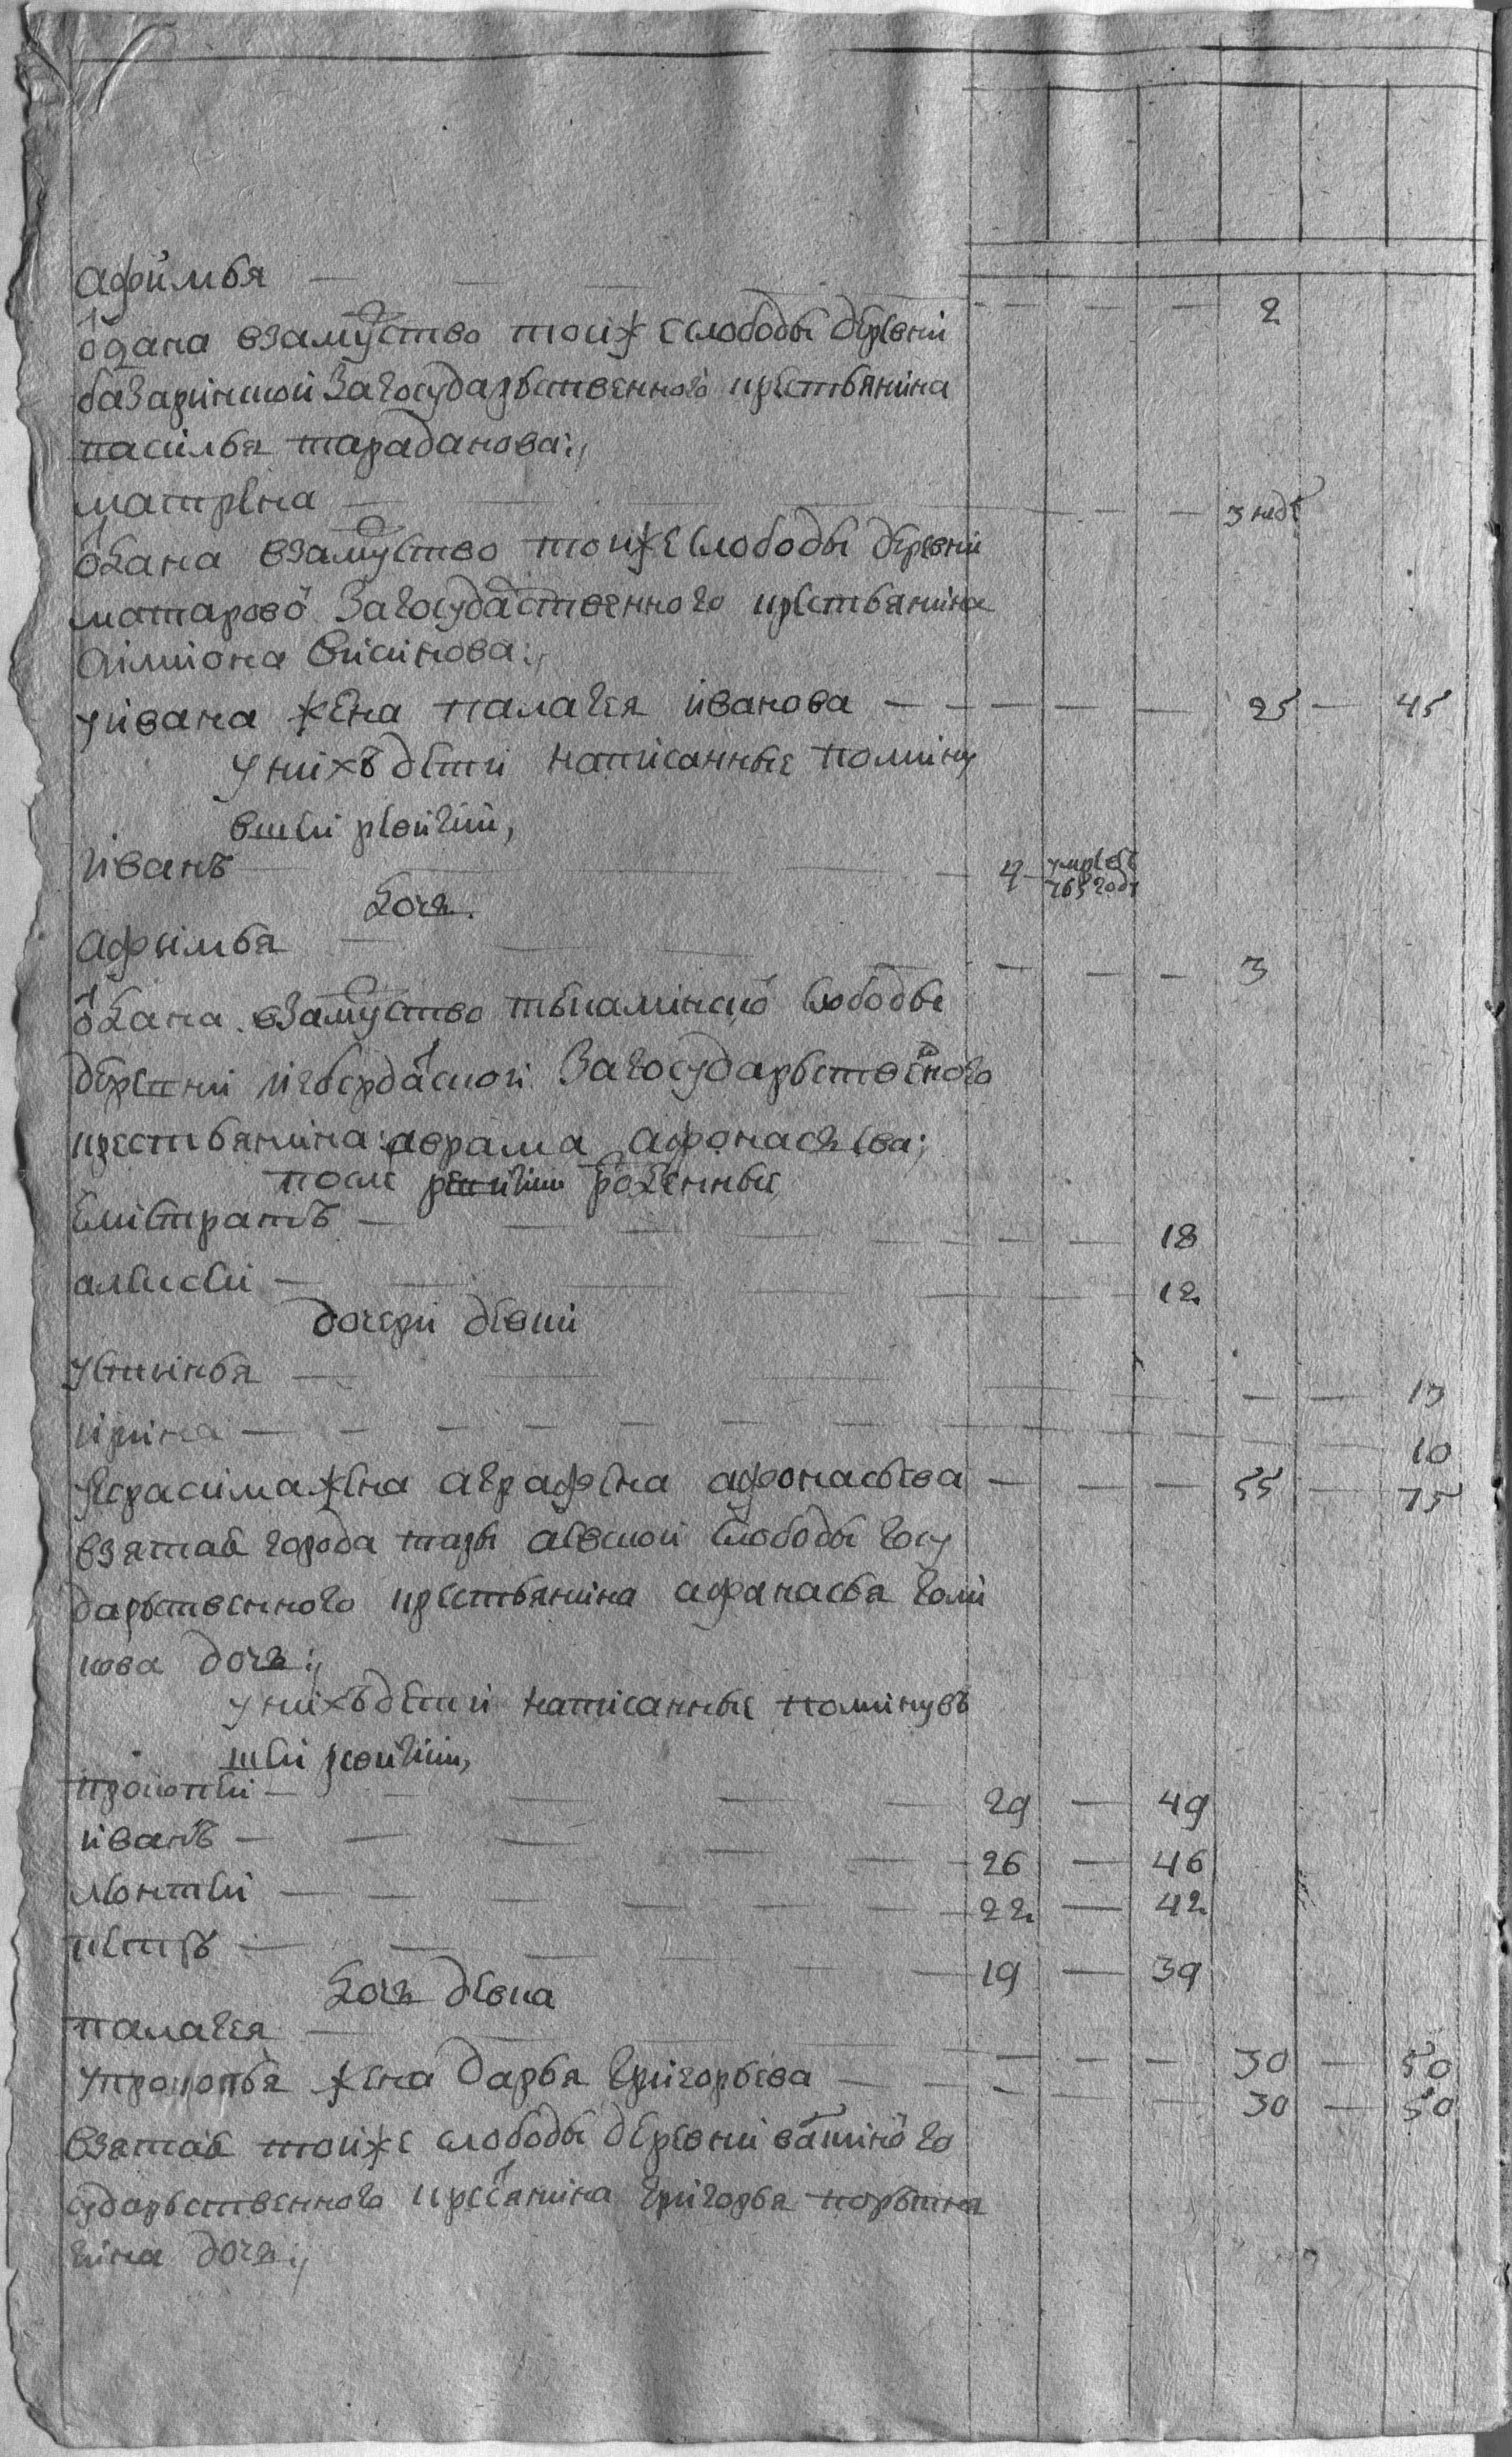 афимья — — — — — — — 2
о<sup>т</sup>дана взаму<sup>ж</sup>ство тоиж слободы деревни
базаринской Загосударьственного крестьянина
василья тараданова:,
матрена — — — — 3 неде
о<sup>т</sup>дана взаму<sup>ж</sup>ство тоиже слободы деревни
матарово Загосударственного крестьянина
симиона
уивана жена палагея иванова — — — — 25 — 45
унихъ дети написанные помину
вшеи ревизии,
иванъ — — — 4 умре въ 765 годе
дочь
афимья — — — — 3
о<sup>т</sup>дана взаму<sup>ж</sup>ство слободы
деревни Загосударьственого
крестьянина аврама афонасьева;
после ревизии рожденные
Елистратъ — — — — 18
алексеи — — — — 12
дочери девки
устинья — — — — 13
ирина — — — — 10
Угерасима жена аграфена афонасьева — — — 55 — 75
взятая города тары слободы госу
дарьственного крестьянина афанасья голи
кова дочь:,
унихъ дети написанные поминувъ
шеи ревизии,
прокопеи — — — — 29 — 49
иванъ — — — — 26 — 46
Монтеи — — — — 22 — 42
петръ — — — — 19 — 39
дочь девка
палагея — — — — 30 — 50
упрокопья жена дарья григорьева — — — 30 — 50
взятая тоиже слободы деревни го
сударьственного кресьянина григорья
гина дочь:,